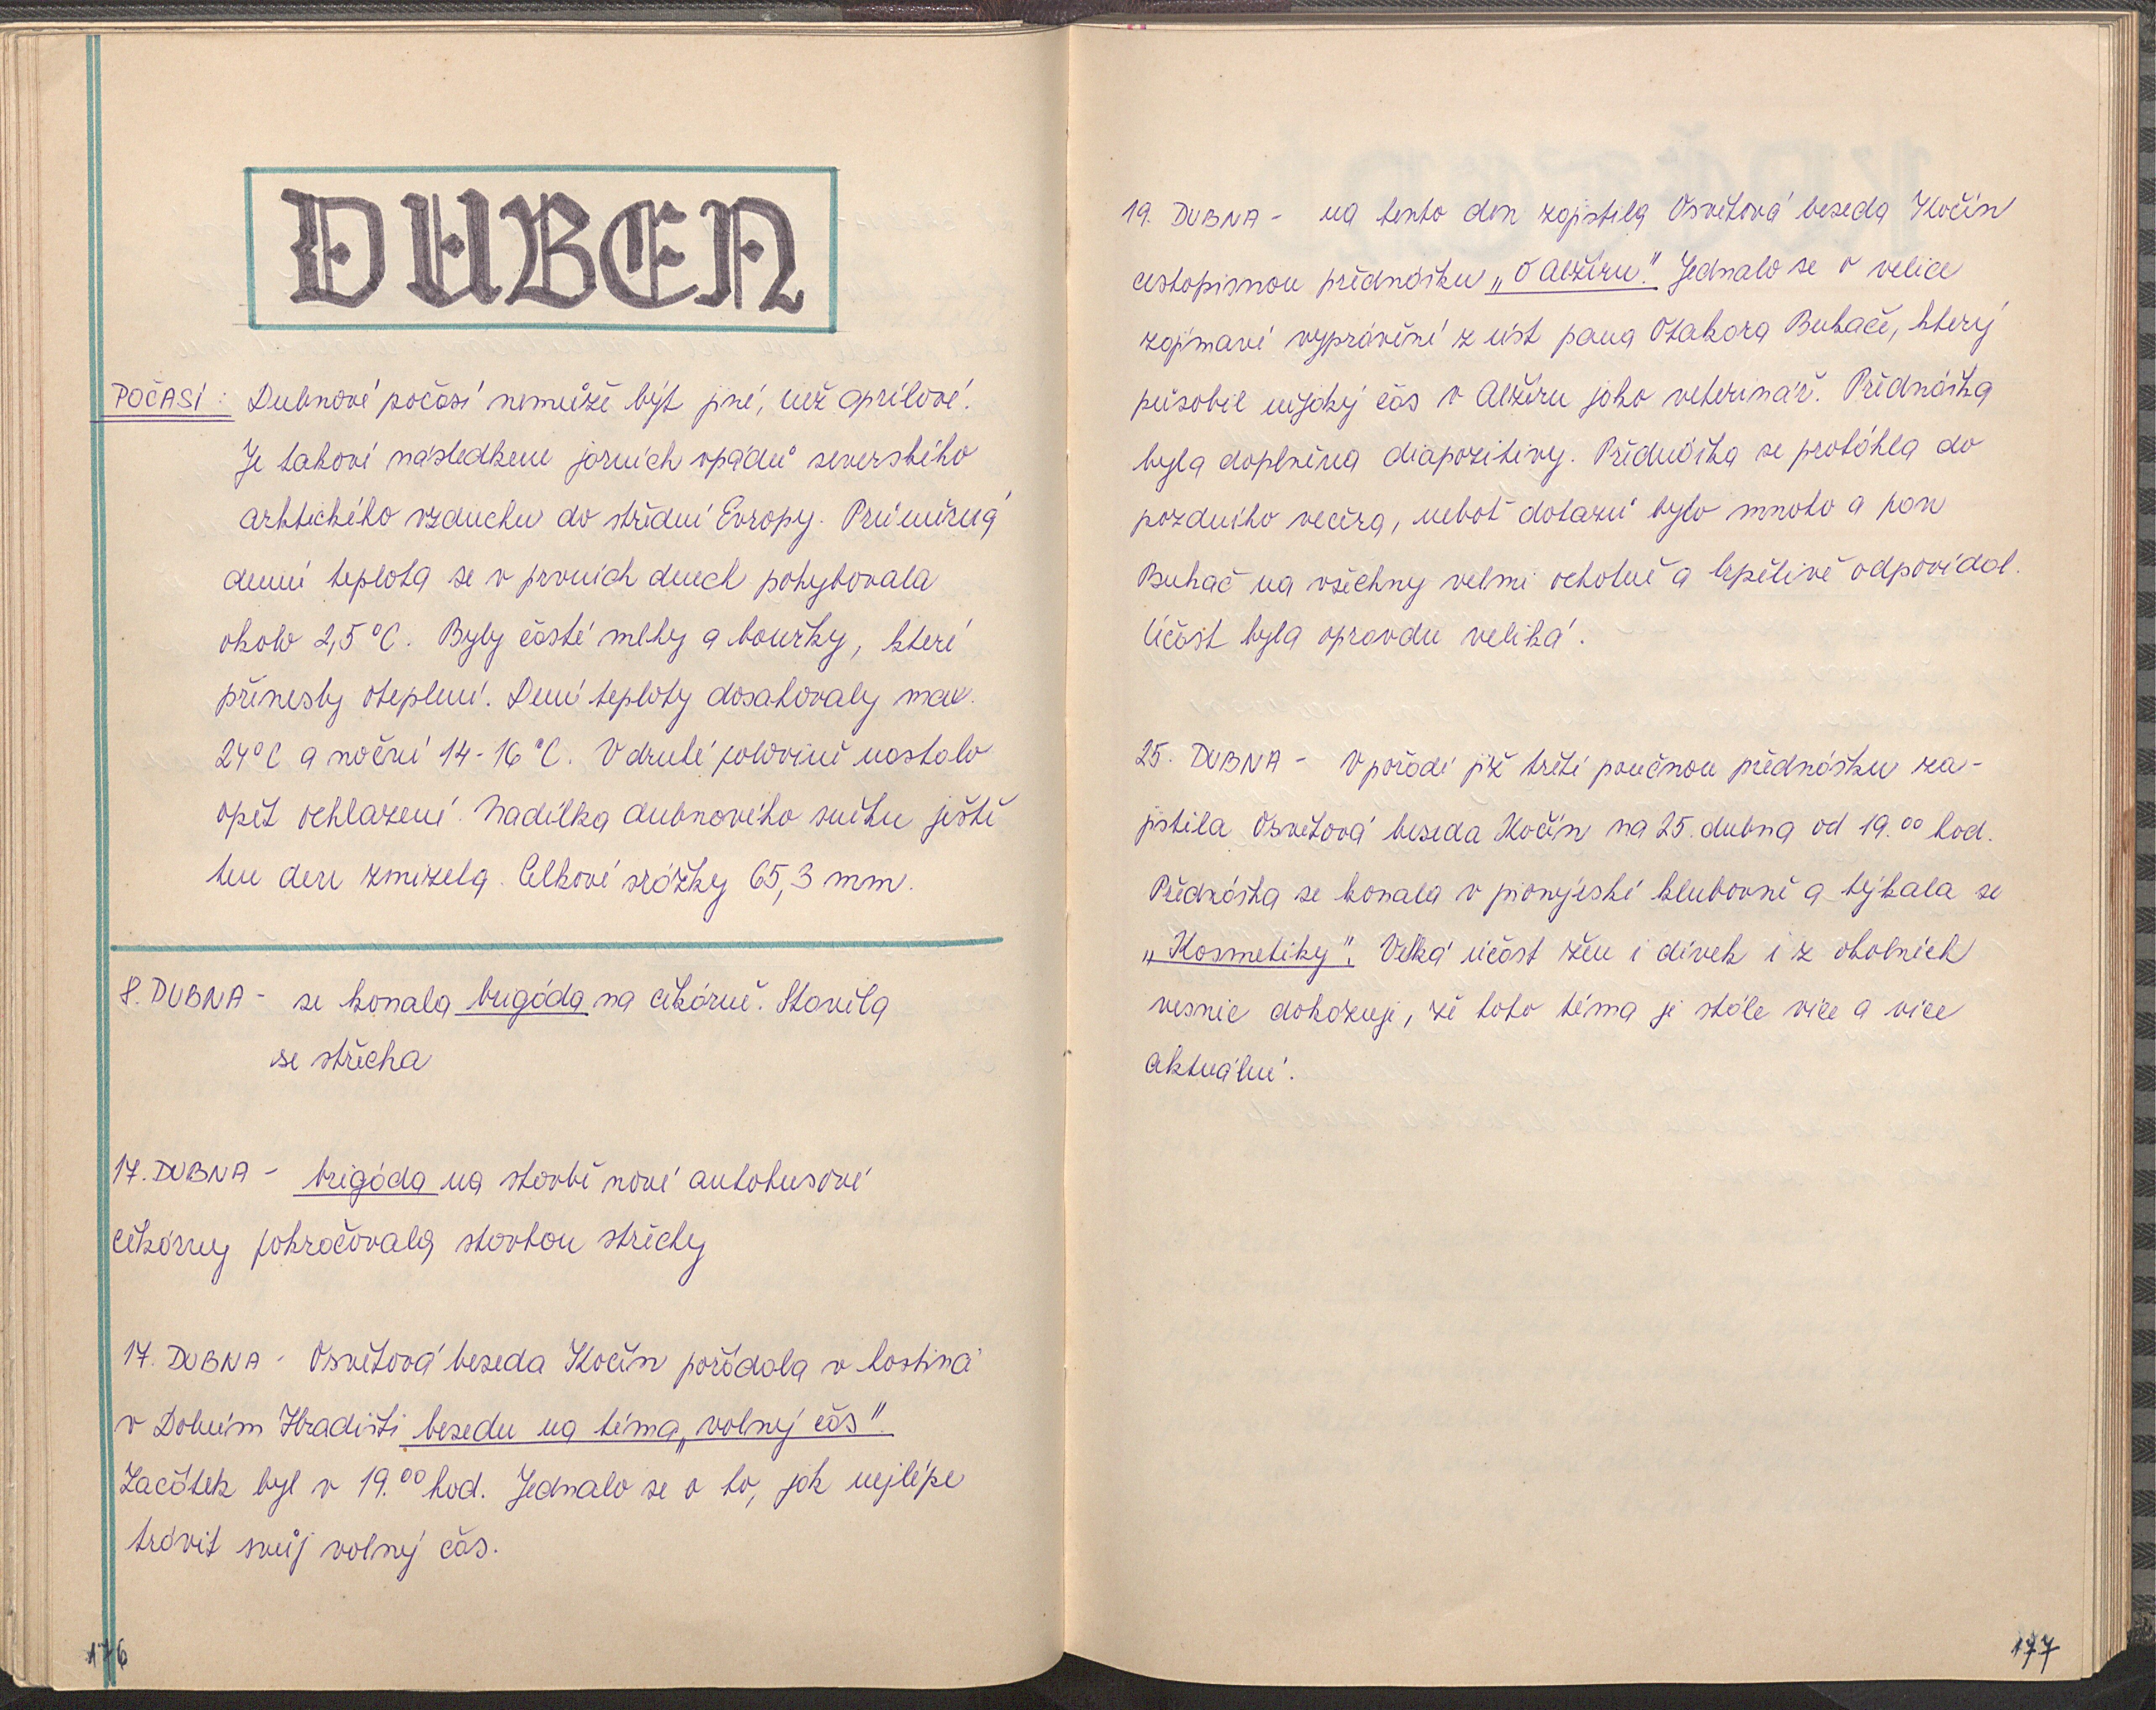 DUBEN
POČASÍ: Dubnové počasí nemůže být jiné, než aprílové.
Je takové následkem jarních vpádů severského
arktického vzduchu do střední Evropy. Průměrná
denní teplota se v prvních dnech pohybovala
okolo 2,5°C. Byly časté mlhy a bouřky, které
přinesly oteplení. Dení teploty dosahovaly max.
24°C a noční 14-16°C. V druhé polovině nastalo
opět ochlazení. Nadílka dubnového sněhu ještě
ten den zmizela. Celkové srážky 65,3 mm.
8. DUBNA - se konala brigáda na čekárně. Stavěla
se střecha
17. DUBNA - brigáda na stavbě nové autobusové
čekárny pokračovala stavbou střechy
17. DUBNA - Osvětová beseda Kočín pořádala v hostinci
v Dolním Hradišti besedu na téma „volný čas".
Začátek byl v 19.00 hod. Jednalo se o to, jak nejlépe
trávit svůj volný čas.
176
19. DUBNA - na tento den zajistila Osvětová beseda Kočín
cestopisnou přednášku „O Alžíru." Jednalo se o velice
zajímavé vyprávění z úst pana Otakara Buhače, který
působil nějaký čas v Alžíru jako veterinář. Přednáška
byla doplněna diapozitivy. Přednáška se protáhla do
pozdního večera, neboť dotazů bylo mnoho a pan
Buhač na všechny velmi ochotně a trpělivě odpovídal.
Účast byla opravdu veliká.
25. DUBNA - V pořadí již třetí poučnou přednášku za-
jistila Osvětová beseda Kočín na 25. dubna od 19.00 hod.
Přednáška se konala v pionýrské klubovně a týkala se
„Kosmetiky". Velká účast žen i dívek i z okolních
vesnic dokazuje, že toto téma je stále více a více
aktuální.
177